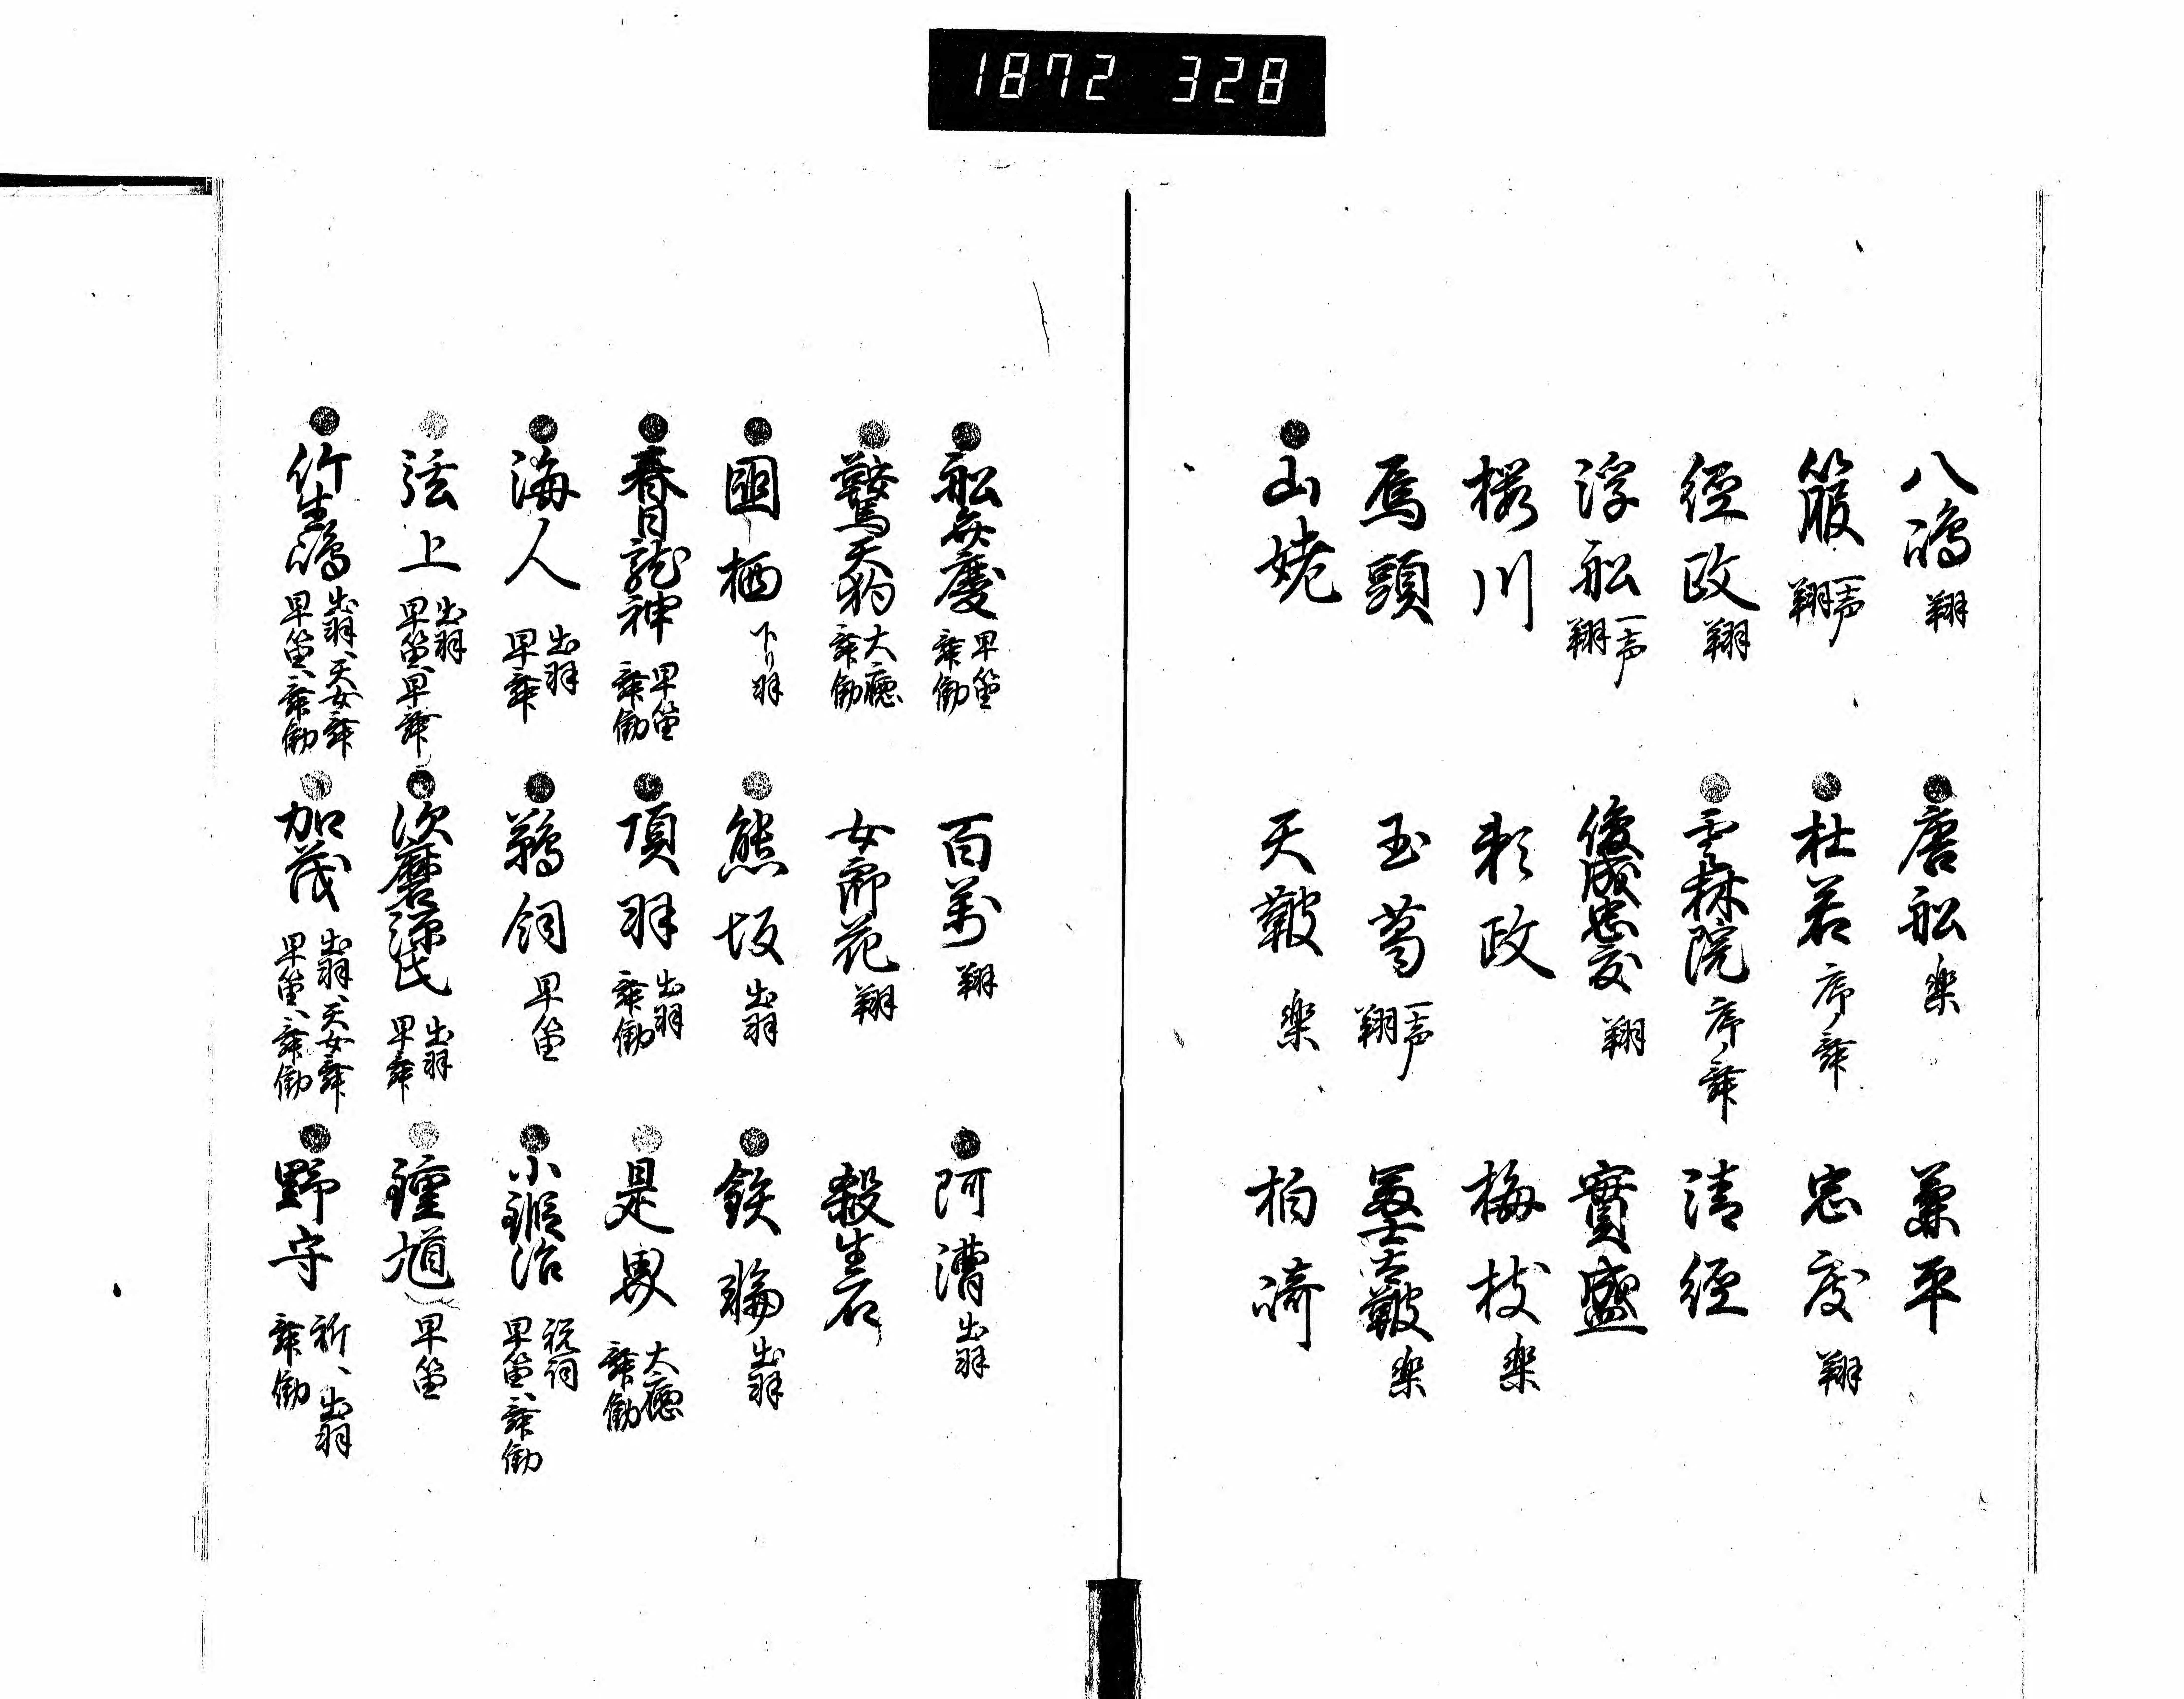 1872 328
八嶋 翔
唐舩 楽
兼平
箙 一声 翔
杜若 序ノ舞
忠度 翔
經政 翔
雲林院 序ノ舞
清經
浮舩 一声 翔
俊成忠度 翔
實盛
櫻川
頼政
梅枝 楽
馬頭
玉葛 一声 翔
冨士太鞁 楽
山姥
天鞁 楽
柏崎
舩弁慶 早笛 舞働
百万 翔
阿漕 出羽
鞍馬天狗 大癋 舞働
女郎花 翔
殺生石
國栖 下リ羽
熊坂 出羽
鉄輪 出羽
春日龍神 早笛 舞働
項羽 出羽 舞働
是界 大癋 舞働
海人 出羽 早舞
鵜飼 早笛
小鍛冶 祝詞 早笛、舞働
弦上 出羽 早笛、早舞
須磨源氏 出羽 早舞
鍾馗 早笛
竹生嶋 出羽、天女舞 早笛、舞働
加茂 出羽、天女舞 早笛、舞働
野守 祈、出羽 舞働